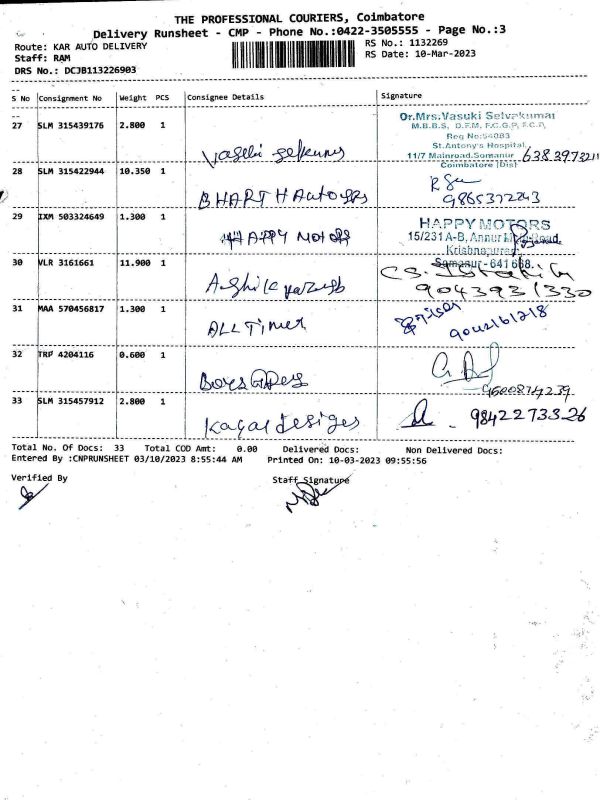 THE PROFESSIONAL COURIERS, Coimbatore
Delivery Runsheet - CMP - Phone No.:0422-3505555 - Page No.:3
Route: KAR AUTO DELIVERY
RS No.: 1132269
Staff: RAM
RS Date: 10-Mar-2023
DRS No.: DCJB113226903
S No Consignment No Weight PCS Consignee Details Signature
27 SLM 315439176 2.800 1
Dr.Mrs.Vasuki Selvakumar
M.B.B.S, D.F.M, F.C.G.P, F.C.P,
Reg No:54083
St.Antony's Hospital,
11/7 Mainroad.Somanur
Coimbatore (Dist)
28 SLM 315422944 10.350 1 BHARTH Autos
9865372243
29 IXM 503324649 1.300 1 HAPPY MOTORS
HAPPY MOTORS
15/231 A-B, Annur Road,
Krishnapuram
Somanur - 641 668.
30 VLR 3161661 11.900 1
9043931330
31 MAA 570456817 1.300 1 ALL Timer
9042161218
32 TRP 4204116 0.600 1
33 SLM 315457912 2.800 1
9842273326
Total No. Of Docs: 33 Total COD Amt: 0.00 Delivered Docs: Non Delivered Docs:
Entered By :CNPRUNSHEET 03/10/2023 8:55:44 AM Printed On: 10-03-2023 09:55:56
Verified By Staff Signature